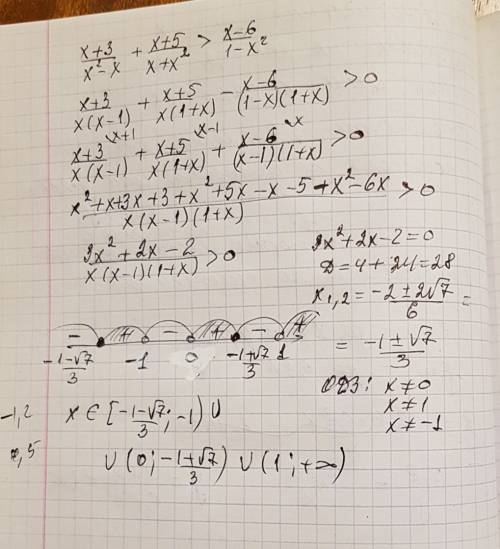 x+3/x²-x + x+5/x+x² > x-6/1-x²
x+3/x(x-1) + x+5/x(1+x) - x-6/(1-x)(1+x) > 0
x+3\x+1/x(x-1) + x+5\x-1/x(1+x) + x-6\x/(x-1)(1+x) > 0
x²+x+3x+3+x²+5x-x-5+x²-6x/x(x-1)(1+x) > 0
3x²+2x-2/x(x-1)(1+x) > 0
3x²+2x-2=0
D=4+24=28
x1,2 = -2±2√7/6 =
= -1±√7/3
ОДЗ: x≠0
x≠1
x≠-1
- + - + - +
-1-√7/3 -1 0 -1+√7/3 1
-1,2 x ∈ [-1-√7/3; -1) ∪
,5 ∪ (0; -1+√7/3) ∪ (1; +∞)